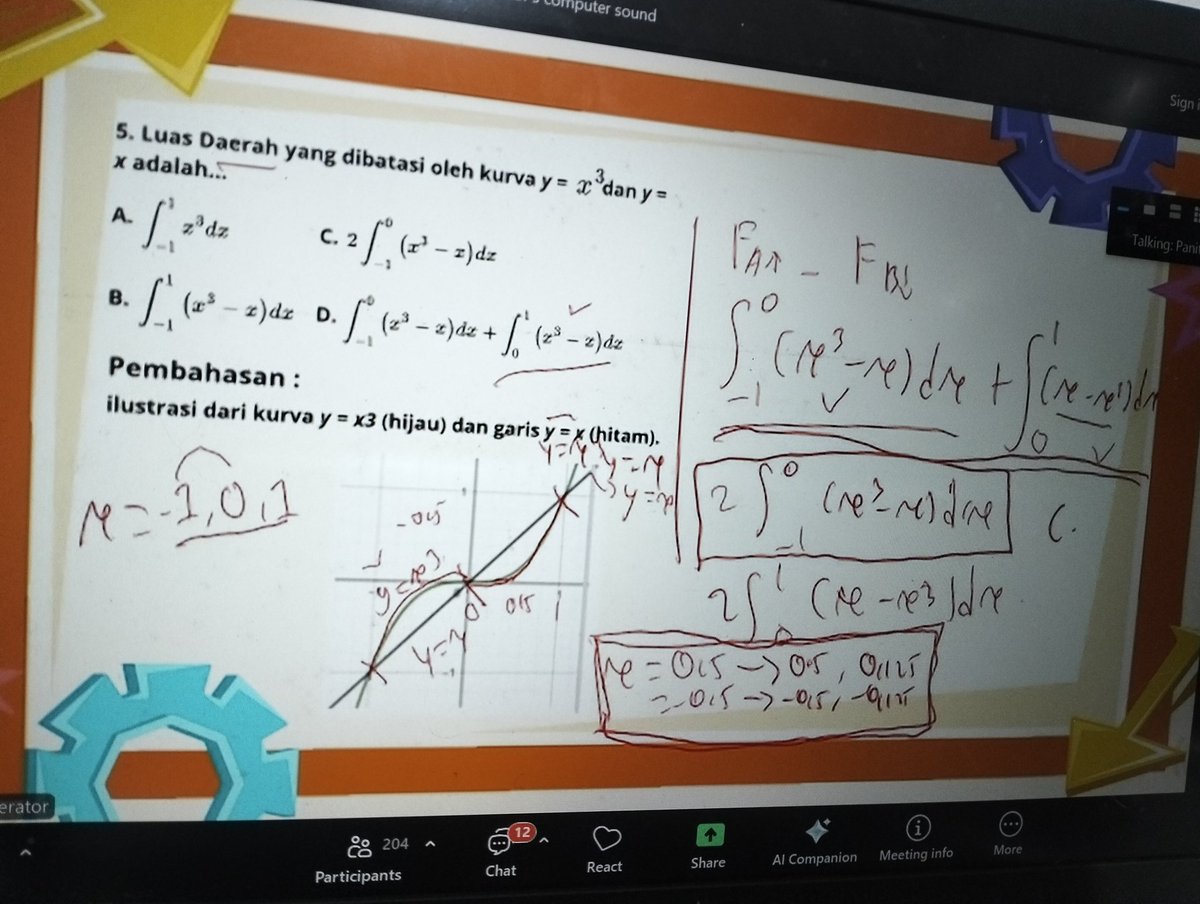 computer sound
Sign
5. Luas Daerah yang dibatasi oleh kurva y = x³ dan y =
x adalah...
A. ∫₋₁¹ x³dx
C. 2 ∫₋₁⁰ (x³ – x)dx
B. ∫₋₁¹ (x³ – x)dx D. ∫₋₁⁰ (x³ – x)dx + ∫₀¹ (x³ – x)dx ✓
Pembahasan :
ilustrasi dari kurva y = x3 (hijau) dan garis y = x (hitam).
x = -1, 0, 1
y=x
y=x
-0,5
-1
y=x³
0
0,5
1
y=x
-1
∫₋₁⁰ (x³ - x) dx + ∫₀¹ (x - x³) dx
2 ∫₋₁⁰ (x³ - x) dx C.
2 ∫₀¹ (x - x³) dx
x = 0,5 → 0,5, 0,125
= -0,5 → -0,5, -0,125
Talking:
erator
204
Participants
12
Chat
React
Share
AI Companion
Meeting info
More